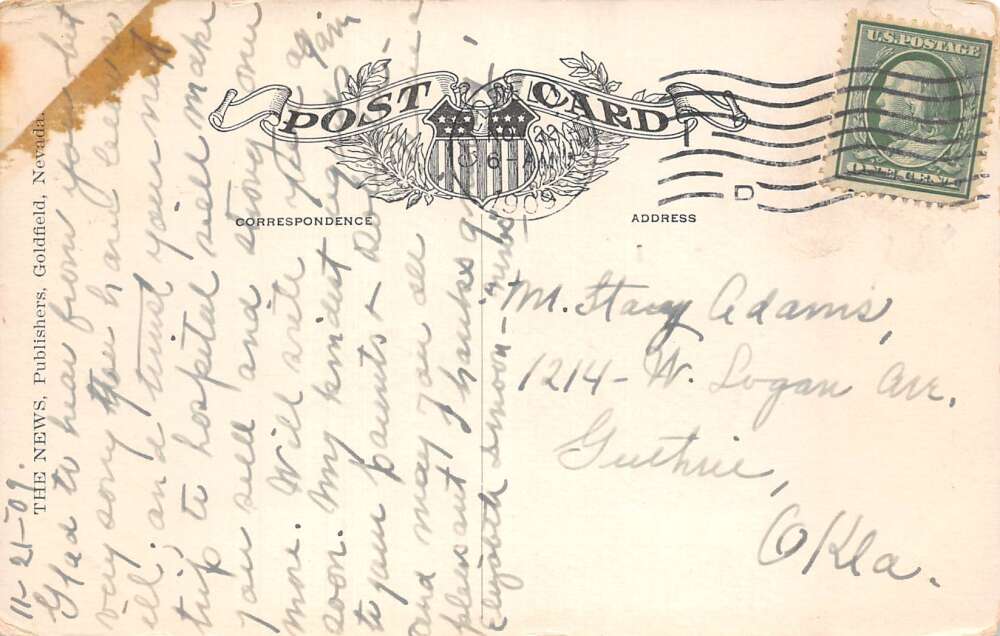 POST CARD
U.S. POSTAGE
ONE CENT
6-AM
1909
D
CORRESPONDENCE
ADDRESS
THE NEWS, Publishers, Goldfield, Nevada.
11-21-09.
Glad to hear from you but
very sorry thee have been
ill, and trust your next
trip to hospital will make
you well and strong once
more. Will write you again
soon. My kindest regards
to your parents +
and may you all
pleasant Thanksgiving
Elizabeth
Mr. Stacy Adams,
1214- W. Logan Ave.
Guthrie,
Okla.